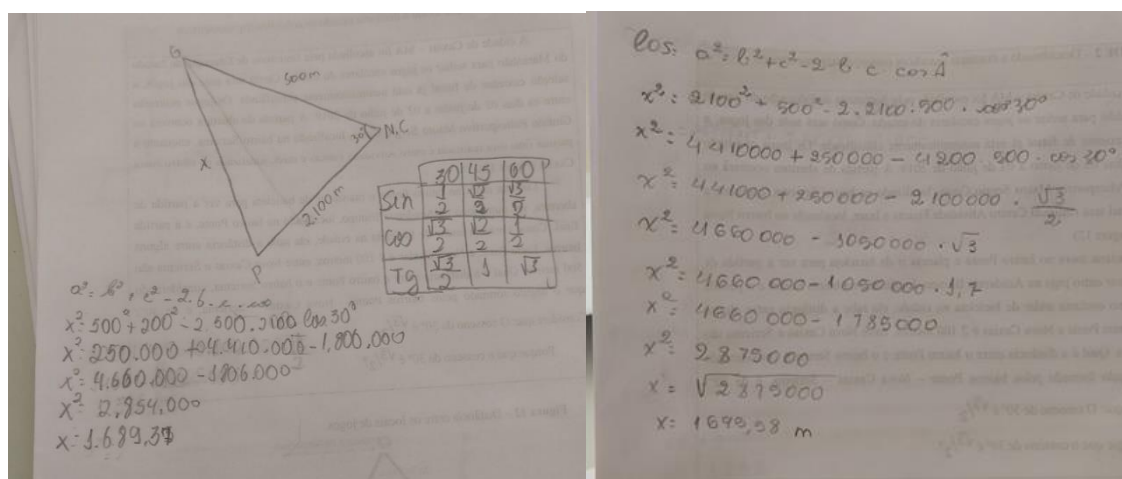 G
500m
30°
N.C
x
2.100m
P
30 | 45 | 60
Sen | 1/2 | √2/2 | √3/2
cos | √3/2 | √2/2 | 1/2
Tg | √3/2 | 1 | √3
x² = 500² + 200² - 2.500.2100 cos 30°
x² = 250.000 + 4.410.000 - 1,800.000
x² = 4.660.000 - 1806.000
x² = 2.854.000
x = 1.689,37
cos: a² = b² + c² - 2 b c cos Â
x² = 2100² + 500² - 2.2100.500 . cos 30°
x² = 4410000 + 250000 - 4200.500 . cos 30°
x² = 441000 + 250000 - 2100000 . √3/2
x² = 4660000 - 1050000 . √3
x² = 4660000 - 1050000 . 1,7
x² = 4660000 - 1785000
x² = 2875000
x = √2875000
x = 1695,58 m